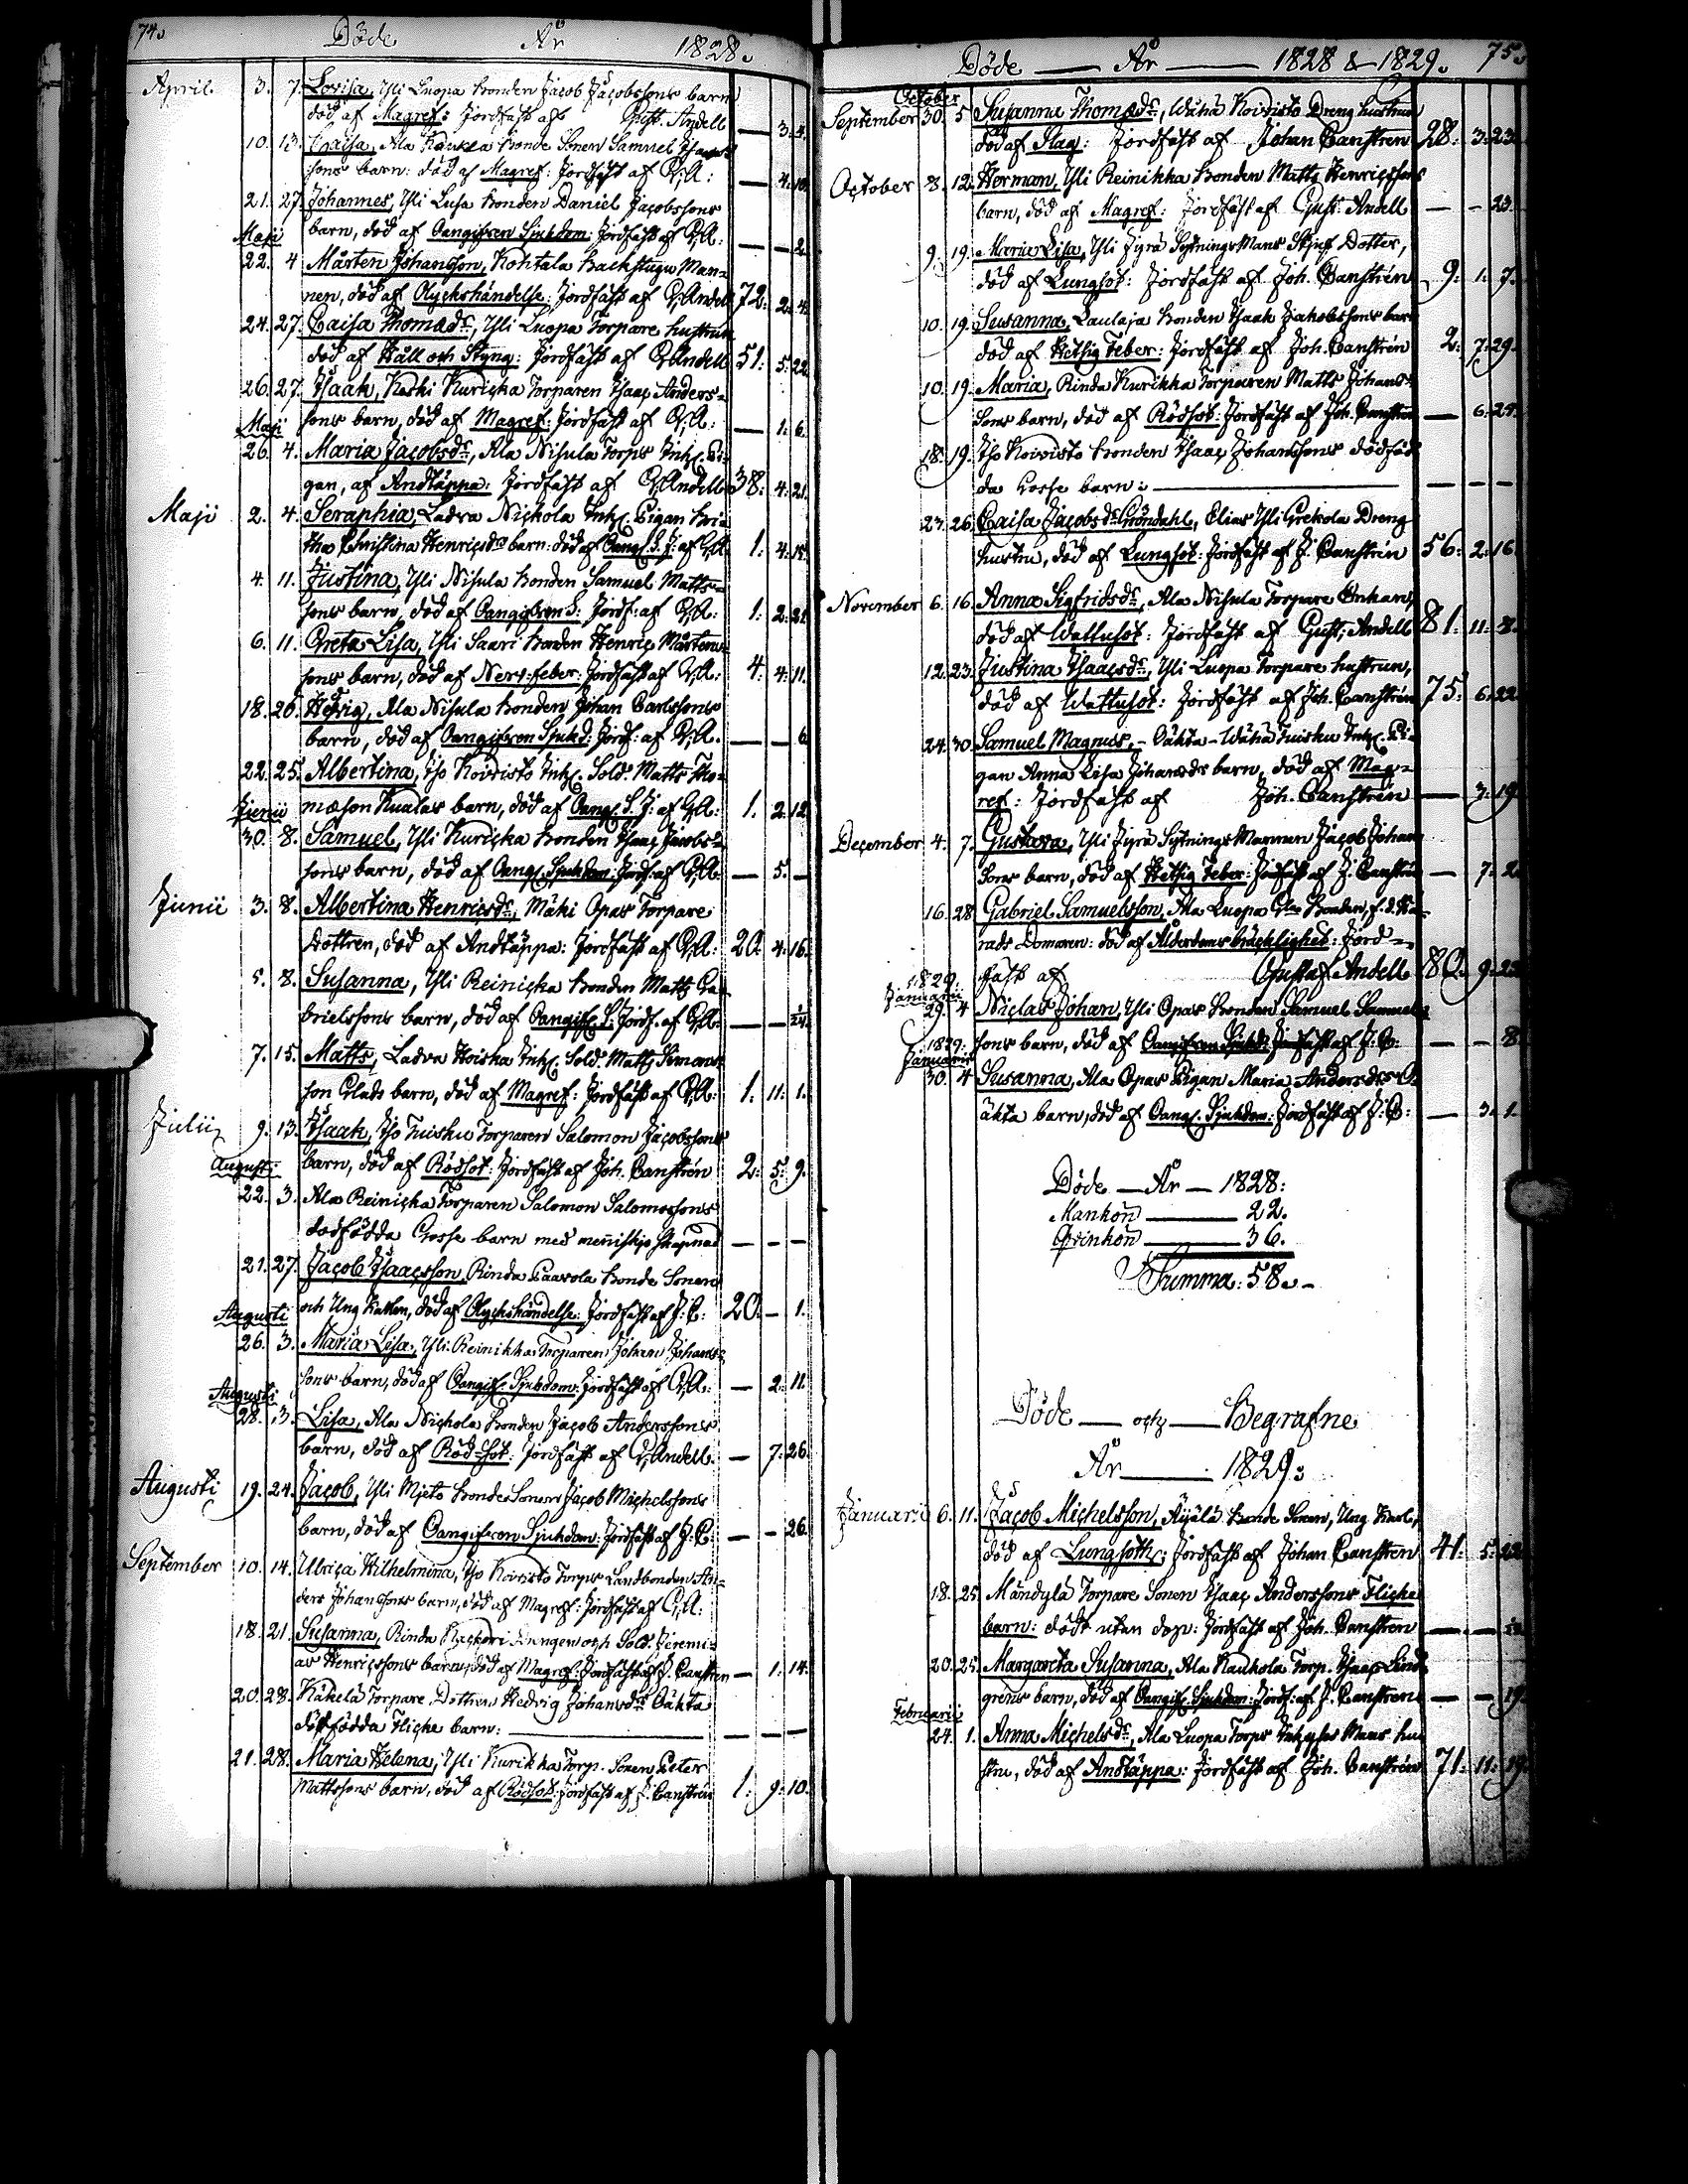 74.
Döde År 1828.
April 3. 7. Lovisa, Yli Luopa bonden Jacob Jacobssons barn
död af Magref: Jordfäst af Gust. Andell — 3. 4.
10. 13. Caisa, Ala Kaukla bonde Sonen Samuel Isaacs
sons barn: död af Magref: Jordfäst af G;A: — 4. 10.
21. 27. Johannes, Yli Lusa bonden Daniel Jacobssons
barn, död af Oangifven Sjukdom: Jordfäst af G;A: — — 2.
Maji
22. 4 Mårten Johansson, Kohtala Backstugu Man-
nen, död af Olyckshändelse: Jordfäst af G;Andell 72: 2. 4.
24. 27. Caisa Thomædr, Yli Luopa Torpare hustrun
död af Håll och Styng: Jordfäst af G;Andell 51: 5. 22.
26. 27. Isaak, Koski Kuricka Torparen Isaac Anders-
sons barn, död af Magref: Jordfäst af G;A: — 1. 6.
Maji
26. 4. Maria Jacobsdr, Ala Nisula Torps Inh. Pi-
gan, af Andtäppa: Jordfäst af G;Andell 38: 4. 21.
Maji 2. 4. Seraphia, Ladva Nickola Inh. Pigan Bri-
tha Christina Henricsdr barn: död af Oang. S. J: af G;A: 1. 4. 15.
4. 11. Justina, Yli Nisula bonden Samuel Matts-
sons barn, död af Oangifven S: Jordf: af G;A: 1. 2. 21.
6. 11. Greta Lisa, Yli Saari bonden Henric Mårtens-
sons barn, död af Nerv-feber: Jordfäst af G;A: 4. 4. 11.
18. 26. Hedvig, Ala Nisula bonden Johan Carlssons
barn, död af Oangifven Sjukd: Jordf: af G;A. — — 6.
22. 25. Albertina, Iso Koivisto Inh. Sold. Matts Tho-
mæson Kualas barn, död af Oang. S. J: af G;A: 1. 2. 12
Junii
30. 8. Samuel, Yli Kuricka bonden Isaac Jacobs-
sons barn, död af Oang. Sjukdom: Jordf: af G;A: — 5. —
Junii 3. 8. Albertina Henricsdr, Mäki Opas Torpare
Dottren, död af Andtäppa: Jordfäst af G;A: 20. 4. 16.
5. 8. Susanna, Yli Reinicka bonden Matts Ga-
brielssons barn, död af Oangif. S: Jordf. af G;A: — — 1/24.
7. 15. Matts, Ladva Hoiska Inh. Sold. Matts Simons-
son Glads barn, död af Magref: Jordfäst af G;A: 1. 11. 1.
Julii 9. 13. Isaak, Iso Tuisku Torparen Salomon Jacobssons
barn, död af Rödsot: Jordfäst af Joh. Canstrén 2. 5. 9.
Augusti
22. 3. Ala Reinicka Torparen Salomon Salomonssons
dödfödda Gosse barn med meniskjo skapnad — — —
21. 27. Jacob Isaacsson, Rinda Paavola bonde Sonen
och Ung Karlen, död af Olyckshändelse: Jordfäst af J: C: 20. — 1.
Augusti
26. 3. Maria Lisa, Yli Reinikka Torparen Johan Johans-
sons barn, död af Oangif. Sjukdom: Jordfäst af G;A: — 2. 11.
Augusti
28. 3. Lisa, Ala Nickola bonden Jacob Anderssons
barn, död af Rödsot: Jordfäst af G;Andell. — 7. 26.
Augusti 19. 24. Jacob, Yli Mjeto bonde Sonen Jacob Michelssons
barn, död af Oangifven Sjukdom: Jordfäst af J. C: — — 26.
September 10. 14. Ulrica Wilhelmina, Iso Koivisto Torps Landbonden An-
ders Johanssons barn, död af Magref: Jordfäst af G;A:
18. 21. Susanna, Rinda Drengen och Sold. Jeremi-
as Henricssons barn, död af Magref: Jordfäst af J. Canstren — 1. 14.
20. 28. Käkelä Torpare Dottren Hedvig Johansdr Oäkta
dödfödda Flicke barn: — — —
21. 28. Maria Helena, Yli Kurikka Torp. Sonen Peter
Mattssons barn, död af Rödsot: Jordfäst af J. Canstrén 1. 9. 10.
75.
Döde — År — 1828 & 1829.
October
September 30. 5 Susanna Thomædr, Wähä Koivisto Dreng hustrun
död af Slag: Jordfäst af Johan Canstren 28. 3. 23.
October 8. 12. Herman, Yli Reinikka bonden Matts Henricssons
barn, död af Magref: Jordfäst af Gust. Andell — — 23.
9. 19. Maria Lisa, Yli Jyrä Sytnings Mans Styf Dotter,
död af Lungsot: Jordfäst af Joh. Canstrén 9. 1. 7.
10. 19. Susanna, Laulaja bonden Isaak Jakobssons barn
död af Hetsig Feber: Jordfäst af Joh. Canstrén 2. 7. 29.
10. 19. Maria, Rinda Kurikka Torparen Matts Johans-
sons barn, död af Rödsot: Jordfäst af Joh. Canstrén — 6. 24.
18. 19. Iso Koivisto bonden Isaac Johanssons dödföd-
da Gosse barn: — — —
23. 26. Caisa Jacobsdr Gröndahl, Elias Yli Grekola Dreng
hustru, död af Lungsot: Jordfäst af J. Canstrén 56. 2. 16.
November 6. 16. Anna Sigfridsdr, Ala Nisula Torpare Enkan,
död af Wattusot: Jordfäst af Gust; Andell 81. 11. 8.
12. 23. Justina Isaacsdr, Yli Luopa Torpare hustrun,
död af Wattusot: Jordfäst af Joh. Canstrén 75. 6. 22.
24. 30. Samuel Magnus, - Oäkta - Wähä Tuisku Inh. Pi-
gan Anna Lisa Johansdrs barn, död af Mag-
ref: Jordfäst af Joh. Canstrén — 3. 19.
December 4. 7. Gustava, Yli Jyrä Sytnings Mannen Jacob Johans
sons barn, död af Hetsig Feber: Jordfäst af J. Canstrén — 7. 2.
16. 28 Gabriel Samuelsson, Ala Luopa Gla Bonden, f. d. Hä-
rads Domaren: död af Ålderdoms bräcklighet: Jord-
fäst af Gustaf Andell 80. 9. 22.
1829.
Januarii
29. 4 Niclas Johan, Yli Opas bonden Samuel Samuels
sons barn, död af Oangifven Sjukd: Jordfäst af J. C: — — 8.
1829.
Januarii
30. 4 Susanna, Ala Opas Pigan Maria Andersdrs O-
äkta barn, död af Oang. Sjukdom: Jordfäst af J: C: — 3. 1.
Döde — År — 1828:
Mankön — 22.
Qvinkön — 36.
Summa: 58.
Döde — och — Begrafne
År — 1829:
Januarii 6. 11. Jacob Michelsson, Äyälä Bonde Sonen, Ung Karl,
död af Lungsoth: Jordfäst af Johan Canstren 41. 5. 22
18. 25. Mändylä Torpare Sonen Isaac Anderssons Flicke
barn: dödt utan dop: Jordfäst af Joh. Canstren — —
20. 25. Margareta Susanna, Ala Kaukola Torp. Isaac Lind-
gréns barn, död af Oangif. Sjukdom: Jordf: af J. Canstrén — — 19.
Februarii
24. 1. Anna Michelsdr, Ala Luopa Torps Inhyses Mans hu-
stru, död af Andtäppa: Jordfäst af Joh. Canstrén 71. 11. 19.